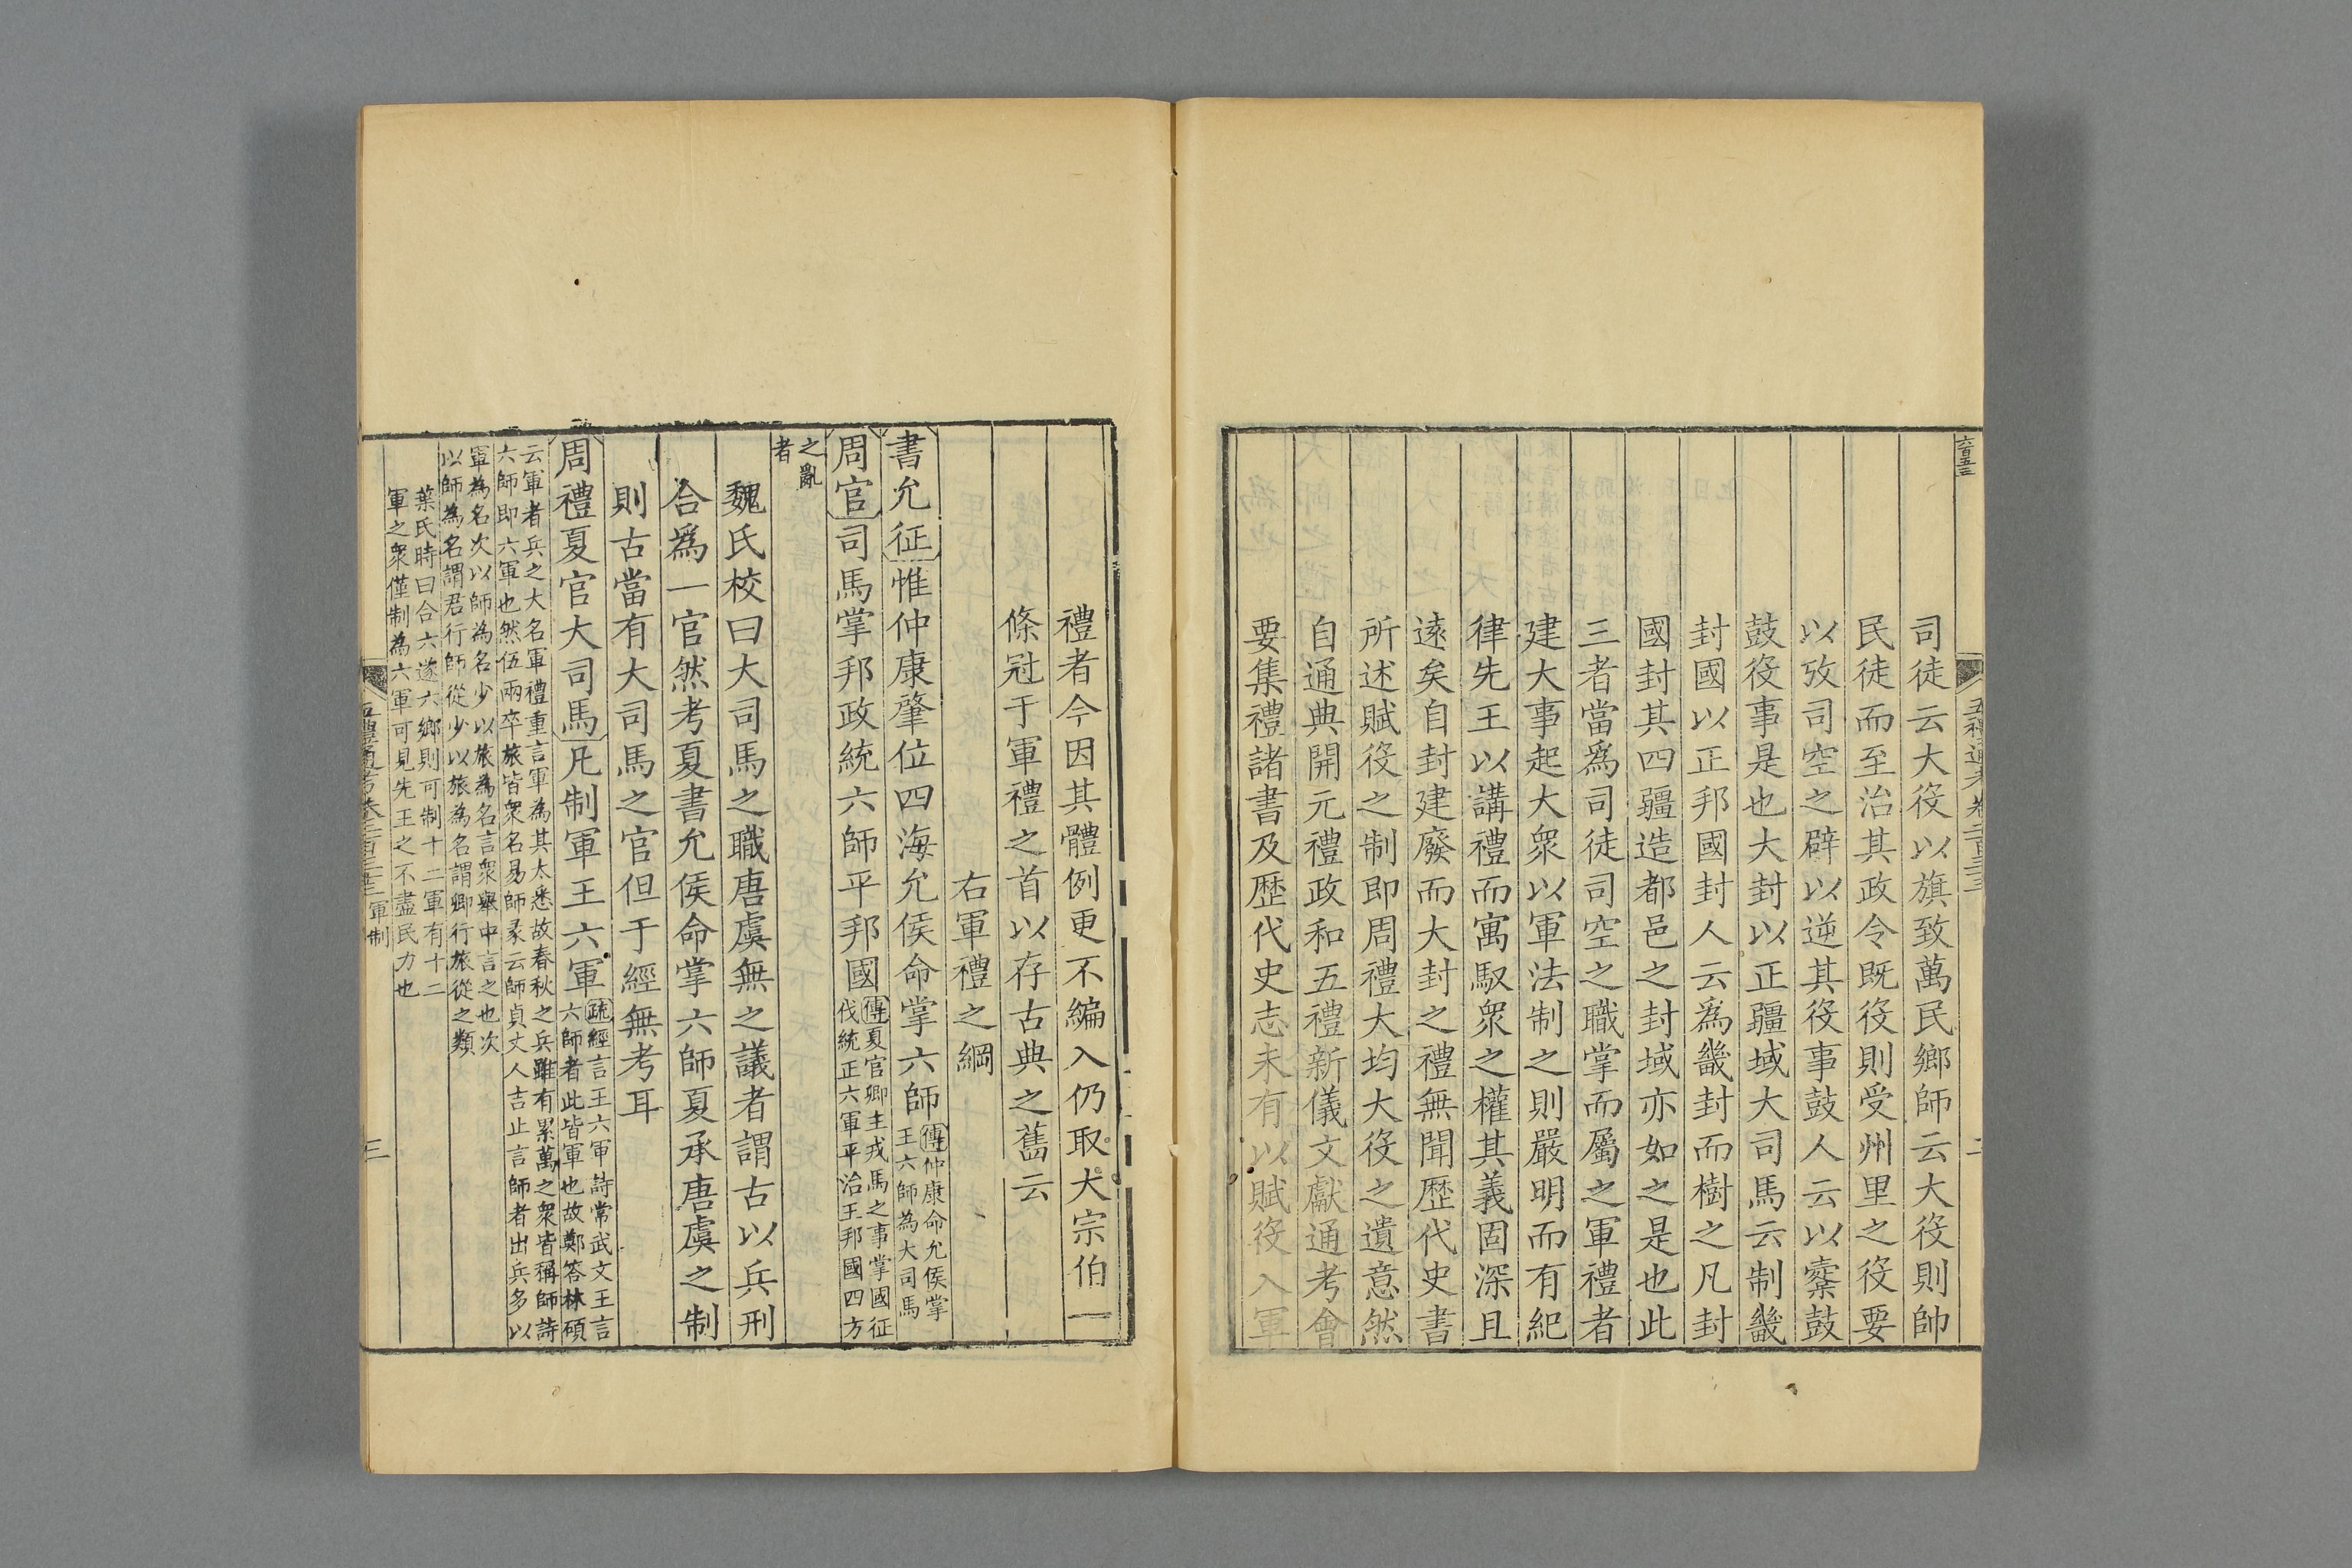 六百五三
司徒云大役以旗致萬民鄉師云大役則帥
民徒而至治其政令既役則受州里之役要
以攷司空之辟以逆其役事鼓人云以鼛鼓
鼓役事是也大封以正疆域大司馬云制畿
封國以正邦國封人云爲畿封而樹之凡封
國封其四疆造都邑之封域亦如之是也此
三者當爲司徒司空之職掌而屬之軍禮者
建大事起大衆以軍法制之則嚴明而有紀
律先王以講禮而寓馭衆之權其義固深且
遠矣自封建廢而大封之禮無聞歷代史書
所述賦役之制即周禮大均大役之遺意然
自通典開元禮政和五禮新儀文獻通考會
要集禮諸書及歷代史志未有以賦役入軍
禮者今因其體例更不編入仍取大宗伯一
條冠于軍禮之首以存古典之舊云
右軍禮之綱
書允征惟仲康肇位四海允侯命掌六師傳仲康命允侯掌
王六師為大司馬
周官司馬掌邦政統六師平邦國傳夏官卿主戎馬之事掌國征
伐統正六軍平治王邦國四方
之亂
者
魏氏校曰大司馬之職唐虞無之議者謂古以兵刑
合爲一官然考夏書允侯命掌六師夏承唐虞之制
則古當有大司馬之官但于經無考耳
周禮夏官大司馬凡制軍王六軍疏經言王六軍詩常武文王言
六師者此皆軍也故鄭答林碩
云軍者兵之大名軍禮重言軍為其太悉故春秋之兵雖有累萬之衆皆稱師詩
六師即六軍也然伍兩卒旅皆衆名易師彖云師貞丈人吉止言師者出兵多以
軍為名次以師為名少以旅為名言衆舉中言之也次
以師為名謂君行師從少以旅為名謂卿行旅從之類
葉氏時曰合六遂六鄉則可制十二軍有十二
軍之衆僅制為六軍可見先王之不盡民力也
軍制
三